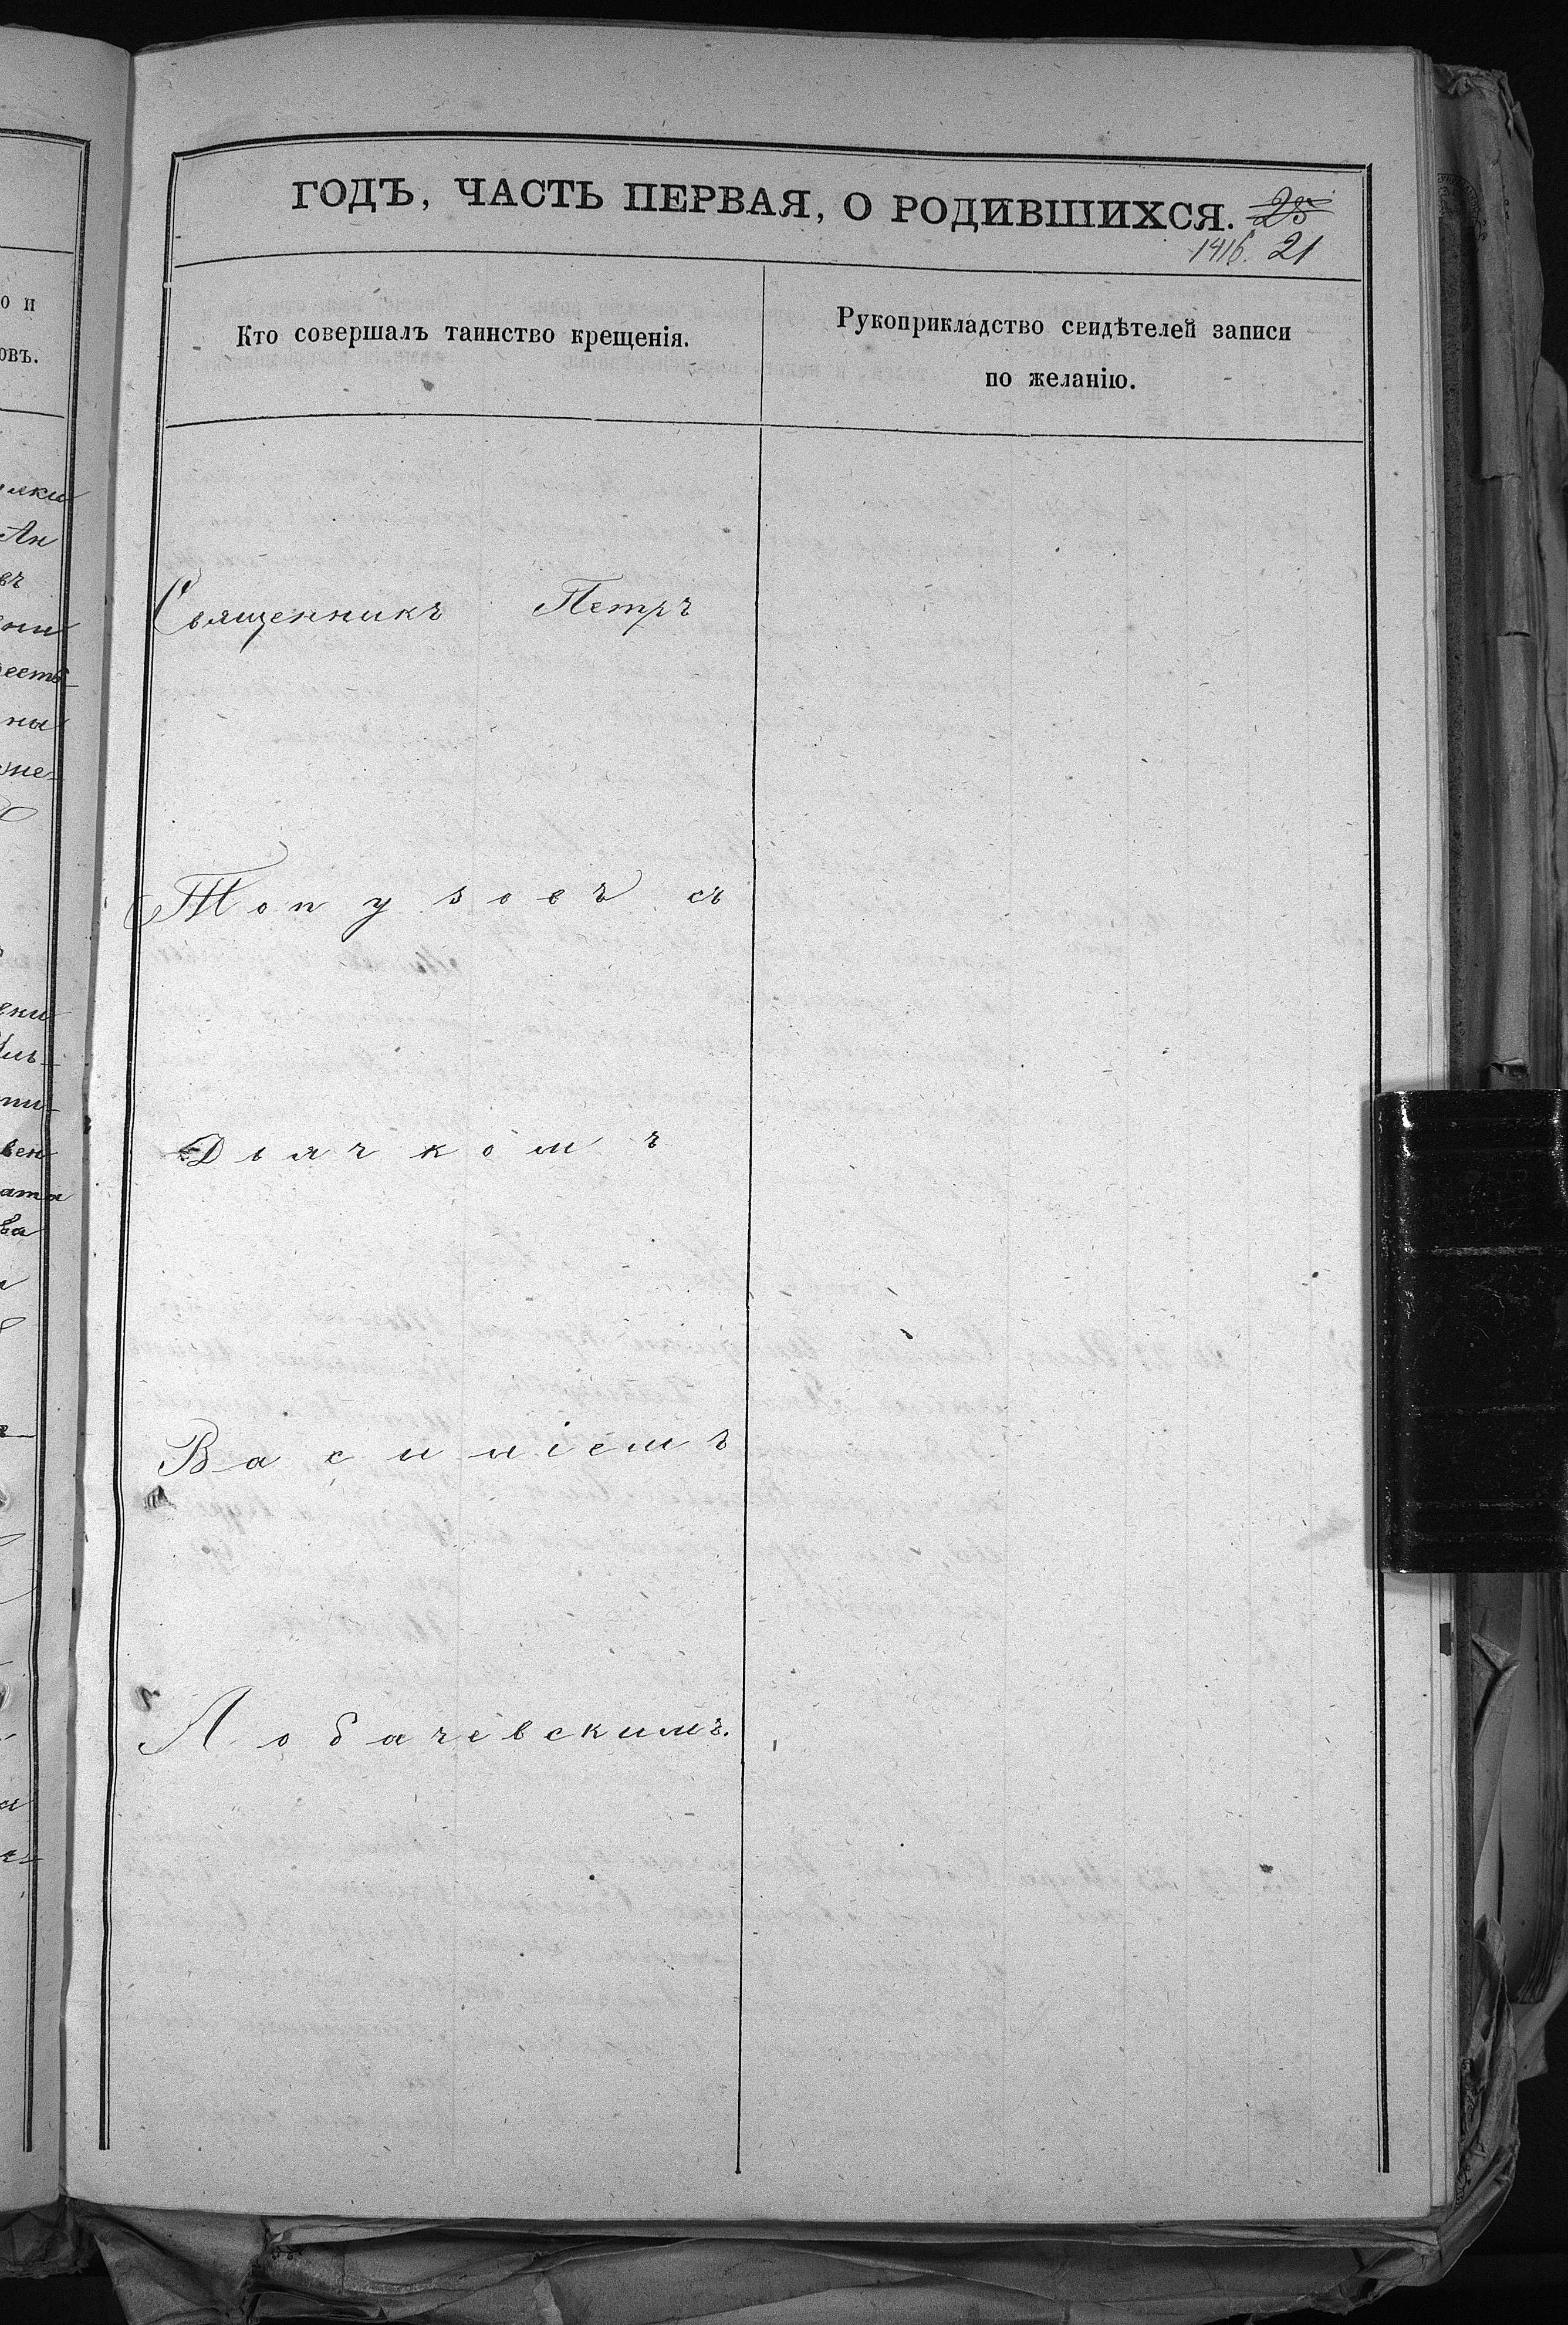 ГОДЪ, ЧАСТЬ ПЕРВАЯ, О РОДИВШИХСЯ.
1416. 21
Кто совершалъ таинство крещенія.
Рукоприкладство свидѣтелей записи
по желанію.
Священникъ Петръ
Топузовъ съ
Дьячкомъ
Василіемъ
Лобачевскимъ.